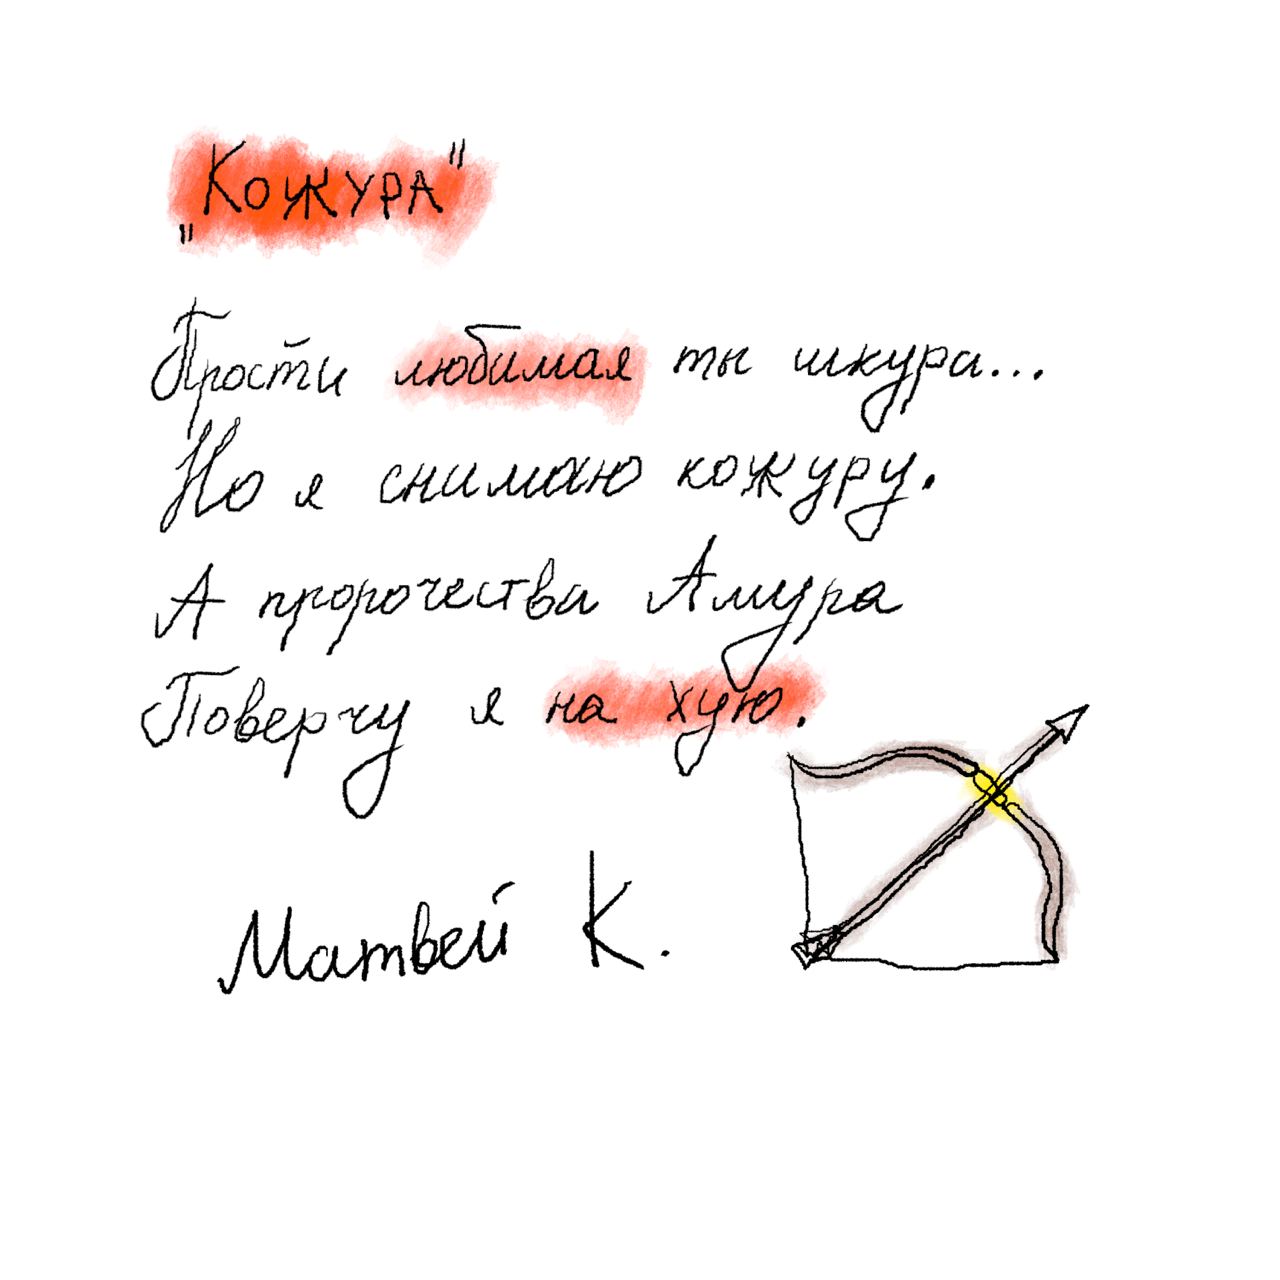 „Кожура"
Прости любимая ты шкура...
Но я снимаю кожуру.
А пророчества Амура
Поверчу я на хую.
Матвей К.